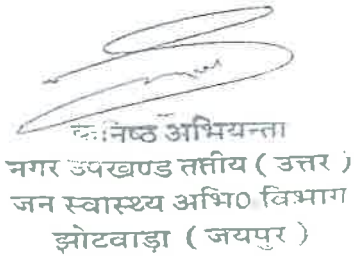 कनिष्ठ अभियन्ता
नगर उपखण्ड तृतीय ( उत्तर )
जन स्वास्थ्य अभि0 विभाग
झोटवाड़ा ( जयपुर )